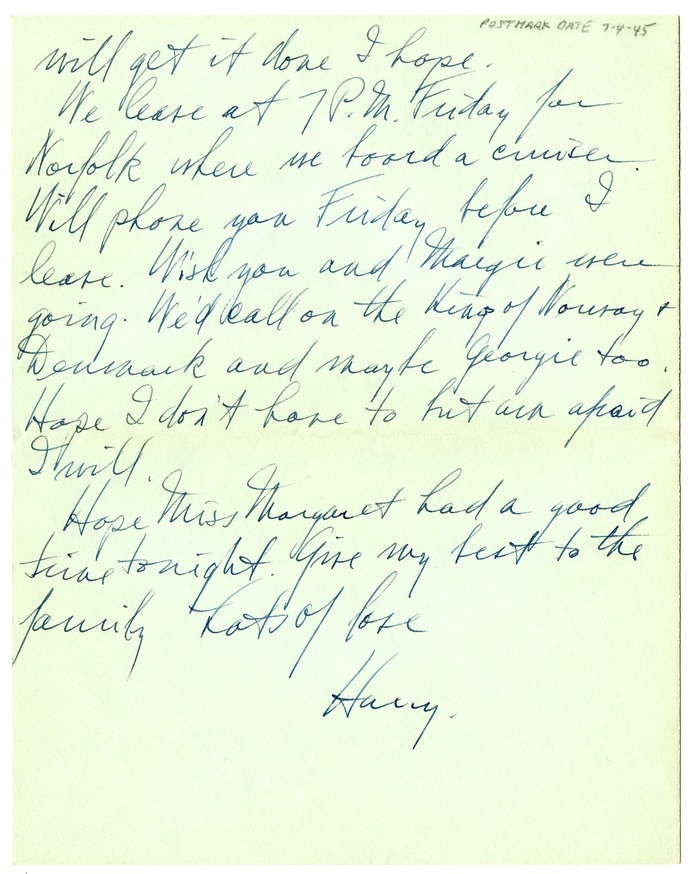 POSTMARK DATE 7-4-45
will get it done I hope.
We leave at 7 P.M. Friday for
Norfolk where we board a cruiser.
Will phone you Friday before I
leave. Wish you and Margie were
going. We'd call on the King of Norway &
Denmark and maybe Georgie too.
Hope I don't have to but am afraid
I will.
Hope Miss Margaret had a good
time tonight. Give my best to the
family Lots of love
Harry.